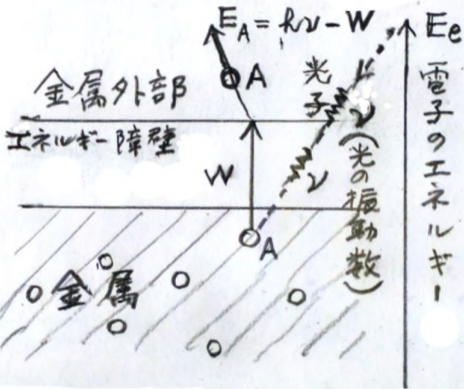 E_A = hν - W
Ee
A
金属外部
光子
ν
エネルギー障壁
W
ν
(光の振動数)
電子のエネルギー
A
金属